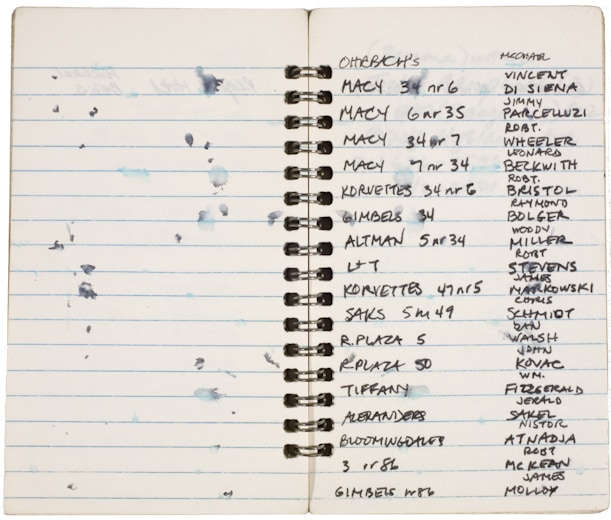 OHRBACH'S MICHAEL
VINCENT
MACY 34 nr 6 DI SIENA
JIMMY
MACY 6 nr 35 PARCELLUZI
ROBT.
MACY 34 nr 7 WHEELER
LEONARD
MACY 7 nr 34 BECKWITH
ROBT.
KORVETTES 34 nr 6 BRISTOL
RAYMOND
GIMBELS 34 BOLGER
WOODY
ALTMAN 5 nr 34 MILLER
ROBT
L+T STEVENS
JAMES
KORVETTES 47 nr 5 MARKOWSKI
CHRIS
SAKS 5 nr 49 SCHMIDT
DAN
R. PLAZA 5 WALSH
JOHN
R. PLAZA 50 KOVAC
WM.
TIFFANY FITZGERALD
JERALD
ALEXANDERS SAKEL
NISTOR
BLOOMINGDALES ATNADJA
ROBT
3 nr 86 MCKEAN
JAMES
GIMBELS nr 86 MOLLOY